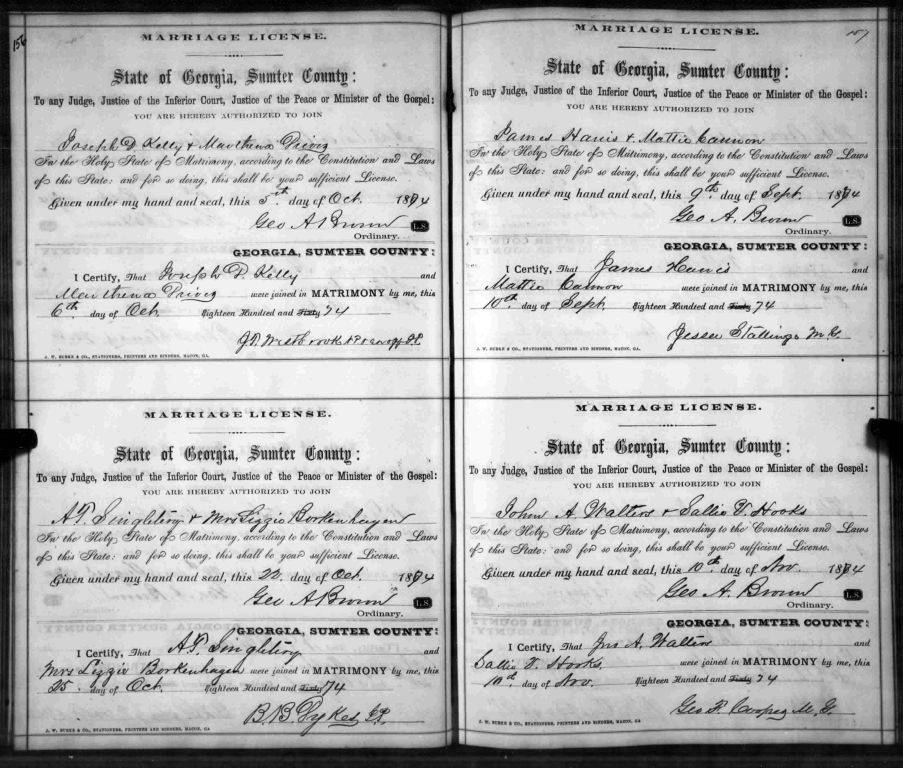 156
MARRIAGE LICENSE.
State of Georgia, Sumter County:
To any Judge, Justice of the Inferior Court, Justice of the Peace or Minister of the Gospel:
YOU ARE HEREBY AUTHORIZED TO JOIN
Joseph D. Kelly &
In the Holy State of Matrimony, according to the Constitution and Laws
of this State: and for so doing, this shall be your sufficient License.
Given under my hand and seal, this 5th day of Oct. 1874
Geo A Brown L.S.
Ordinary.
GEORGIA, SUMTER COUNTY:
I Certify, That Joseph D. Kelly and
were joined in MATRIMONY by me, this
6th day of Oct. Eighteen Hundred and Sixty 74
J. W. BURKE & CO., STATIONERS, PRINTERS AND BINDERS, MACON, GA.
MARRIAGE LICENSE.
State of Georgia, Sumter County:
To any Judge, Justice of the Inferior Court, Justice of the Peace or Minister of the Gospel:
YOU ARE HEREBY AUTHORIZED TO JOIN
A.T. Singletery & Mrs Lizzie Borkenhagen
In the Holy State of Matrimony, according to the Constitution and Laws
of this State: and for so doing, this shall be your sufficient License.
Given under my hand and seal, this 22 day of Oct. 1874
Geo A Brown L.S.
Ordinary.
GEORGIA, SUMTER COUNTY:
I Certify, That A.T. Singletery and
Mrs Lizzie Borkenhagen were joined in MATRIMONY by me, this
25 day of Oct. Eighteen Hundred and Sixty 74
B B Dykes JP.
J. W. BURKE & CO., STATIONERS, PRINTERS AND BINDERS, MACON, GA
157
MARRIAGE LICENSE.
State of Georgia, Sumter County:
To any Judge, Justice of the Inferior Court, Justice of the Peace or Minister of the Gospel:
YOU ARE HEREBY AUTHORIZED TO JOIN
James Harris & Mattie Cannon
In the Holy State of Matrimony, according to the Constitution and Laws
of this State: and for so doing, this shall be your sufficient License.
Given under my hand and seal, this 9th day of Sept. 1874
Geo A. Brown L.S.
Ordinary.
GEORGIA, SUMTER COUNTY:
I Certify, That James Harris and
Mattie Cannon were joined in MATRIMONY by me, this
10th day of Sept. Eighteen Hundred and Sixty 74
Jesse Stallings M.G.
J. W. BURKE & CO., STATIONERS, PRINTERS AND BINDERS, MACON, GA.
MARRIAGE LICENSE.
State of Georgia, Sumter County:
To any Judge, Justice of the Inferior Court, Justice of the Peace or Minister of the Gospel:
YOU ARE HEREBY AUTHORIZED TO JOIN
John A. Walters & Sallie V. Hooks
In the Holy State of Matrimony, according to the Constitution and Laws
of this State: and for so doing, this shall be your sufficient License.
Given under my hand and seal, this 10th day of Nov. 1874
Geo A. Brown L.S.
Ordinary.
GEORGIA, SUMTER COUNTY:
I Certify, That Jno A. Walters and
Sallie V. Hooks were joined in MATRIMONY by me, this
10th day of Nov. Eighteen Hundred and Sixty 74
Geo F. Cooper M.G.
J. W. BURKE & CO., STATIONERS, PRINTERS AND BINDERS, MACON, GA.